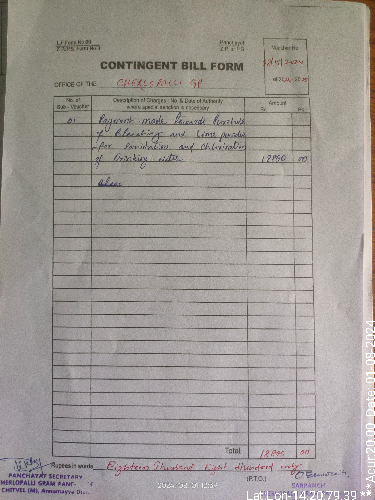 Panchayat
CONTINGENT BILL FORM
Voucher No
OFFICE OF THE CHERLOPALLI GP
No. of
Sub - Voucher
Description of Charges - No. & Date of Authority
where special sanction is necessary
Amount
Rs. Ps.
01 Payment made towards Purchase
of Bleaching and Lime powder
for Sanitation and Chlorination
of Drinking water
00
Total 00
Rupees in words Eighteen Thousand Eight Hundred only
(P.T.O.)
PANCHAYAT SECRETARY
CHERLOPALLI GRAM PANC
CHITVEL (M), Annamayya Dist.
SARPANCH
Lat Lon-14.2079,79.39
Acur:20.09 Date: 01-08-2024